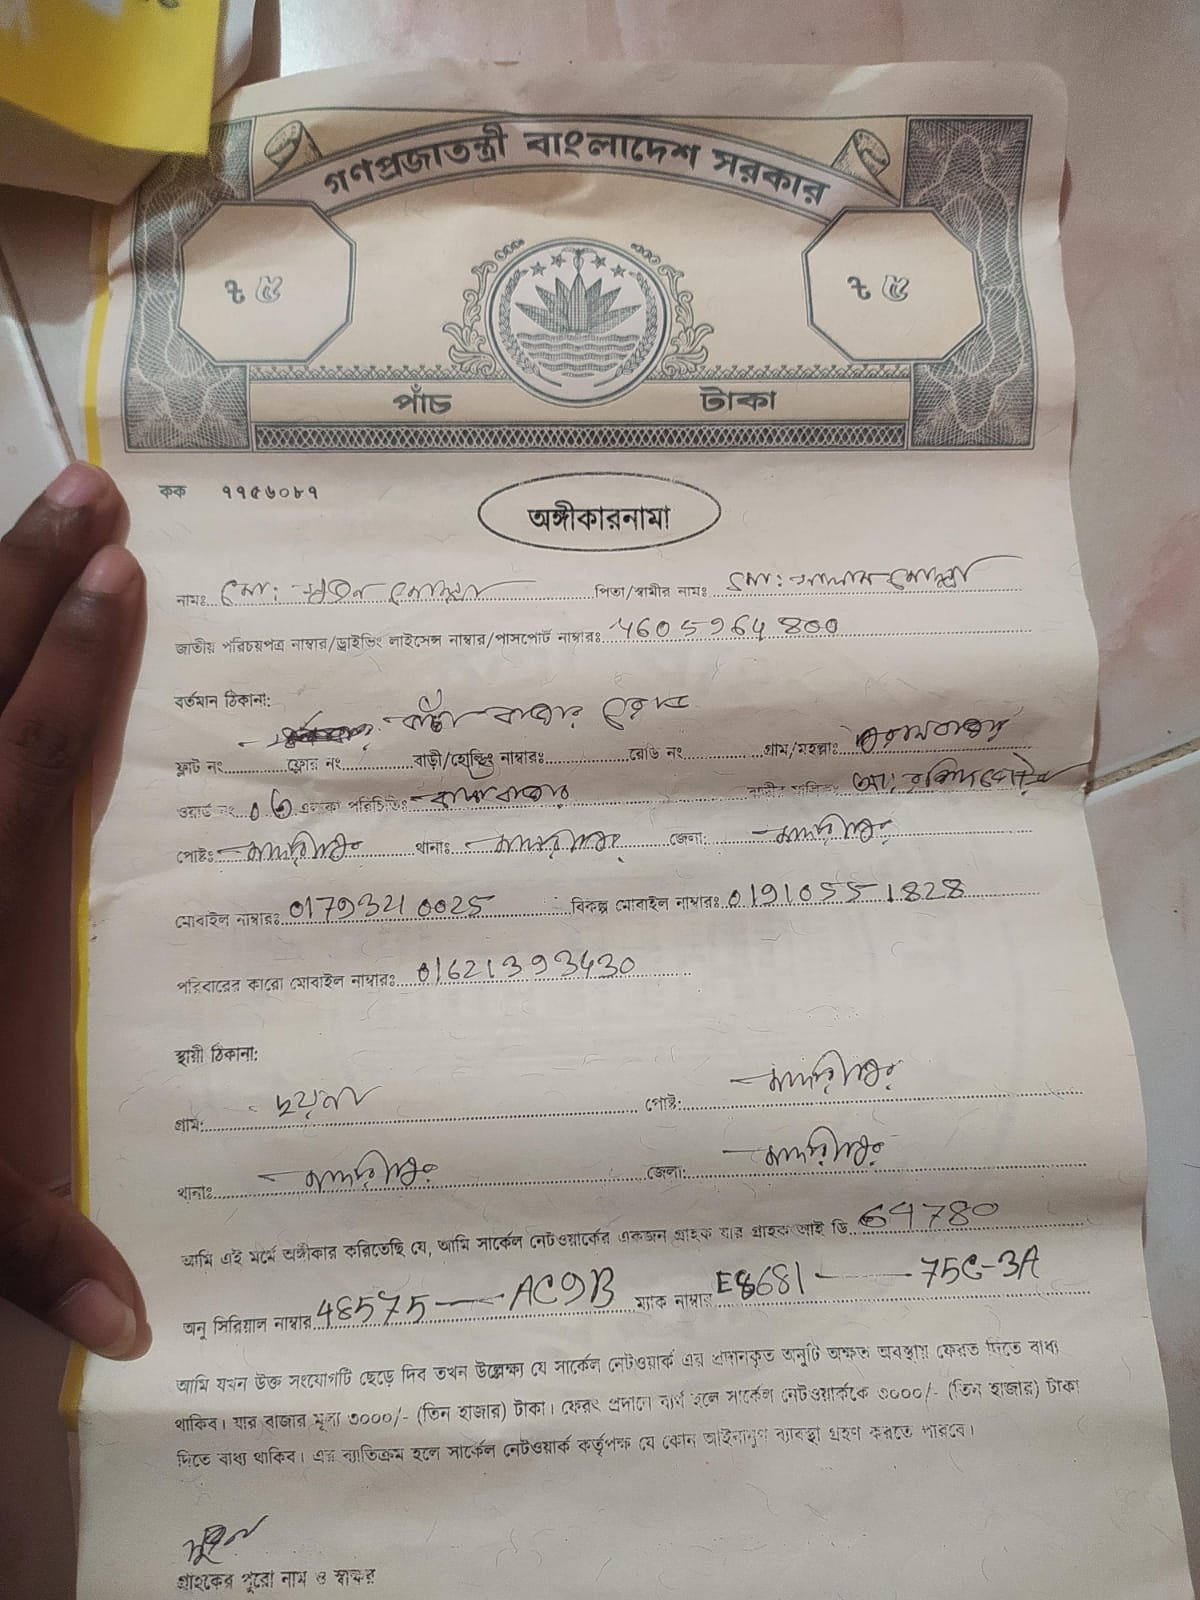 গণপ্রজাতন্ত্রী বাংলাদেশ সরকার
৳ ৫ ৳ ৫
পাঁচ টাকা
কক ৭৭৫৬০৮৭
অঙ্গীকারনামা
নামঃ মো: সুজন মোল্লা পিতা/স্বামীর নামঃ মো: সালাম মোল্লা
জাতীয় পরিচয়পত্র নাম্বার/ড্রাইভিং লাইসেন্স নাম্বার/পাসপোর্ট নাম্বারঃ 4605964800
বর্তমান ঠিকানা:
কাঁচা বাজার রোড
ফ্লাট নং ফ্লোর নং বাড়ী/হোল্ডিং নাম্বারঃ রোড নং গ্রাম/মহল্লাঃ
ওয়ার্ড নং এলাকা পরিচিতিঃ
পোষ্টঃ মাদারীপুর থানাঃ মাদারীপুর জেলা: মাদারীপুর
মোবাইল নাম্বারঃ 01793210025 বিকল্প মোবাইল নাম্বারঃ 01910551828
পরিবারের কারো মোবাইল নাম্বারঃ 01621393430
স্থায়ী ঠিকানা:
গ্রাম: পোষ্ট: মাদারীপুর
থানাঃ মাদারীপুর জেলা: মাদারীপুর
আমি এই মর্মে অঙ্গীকার করিতেছি যে, আমি সার্কেল নেটওয়ার্কের একজন গ্রাহক যার গ্রাহক আই ডি 64780
অনু সিরিয়াল নাম্বার 48575 — AC9B ম্যাক নাম্বার E8681 — 75C-3A
আমি যখন উক্ত সংযোগটি ছেড়ে দিব তখন উল্লেক্ষ্য যে সার্কেল নেটওয়ার্ক এর প্রদানকৃত অনুটি অক্ষত অবস্থায় ফেরত দিতে বাধ্য
থাকিব। যার বাজার মূল্য ৩০০০/- (তিন হাজার) টাকা। ফেরৎ প্রদানে ব্যর্থ হলে সার্কেল নেটওয়ার্ককে ৩০০০/- (তিন হাজার) টাকা
দিতে বাধ্য থাকিব। এর ব্যাতিক্রম হলে সার্কেল নেটওয়ার্ক কর্তৃপক্ষ যে কোন আইনানুগ ব্যাবস্থা গ্রহণ করতে পারবে।
সুজন
গ্রাহকের পুরো নাম ও স্বাক্ষর